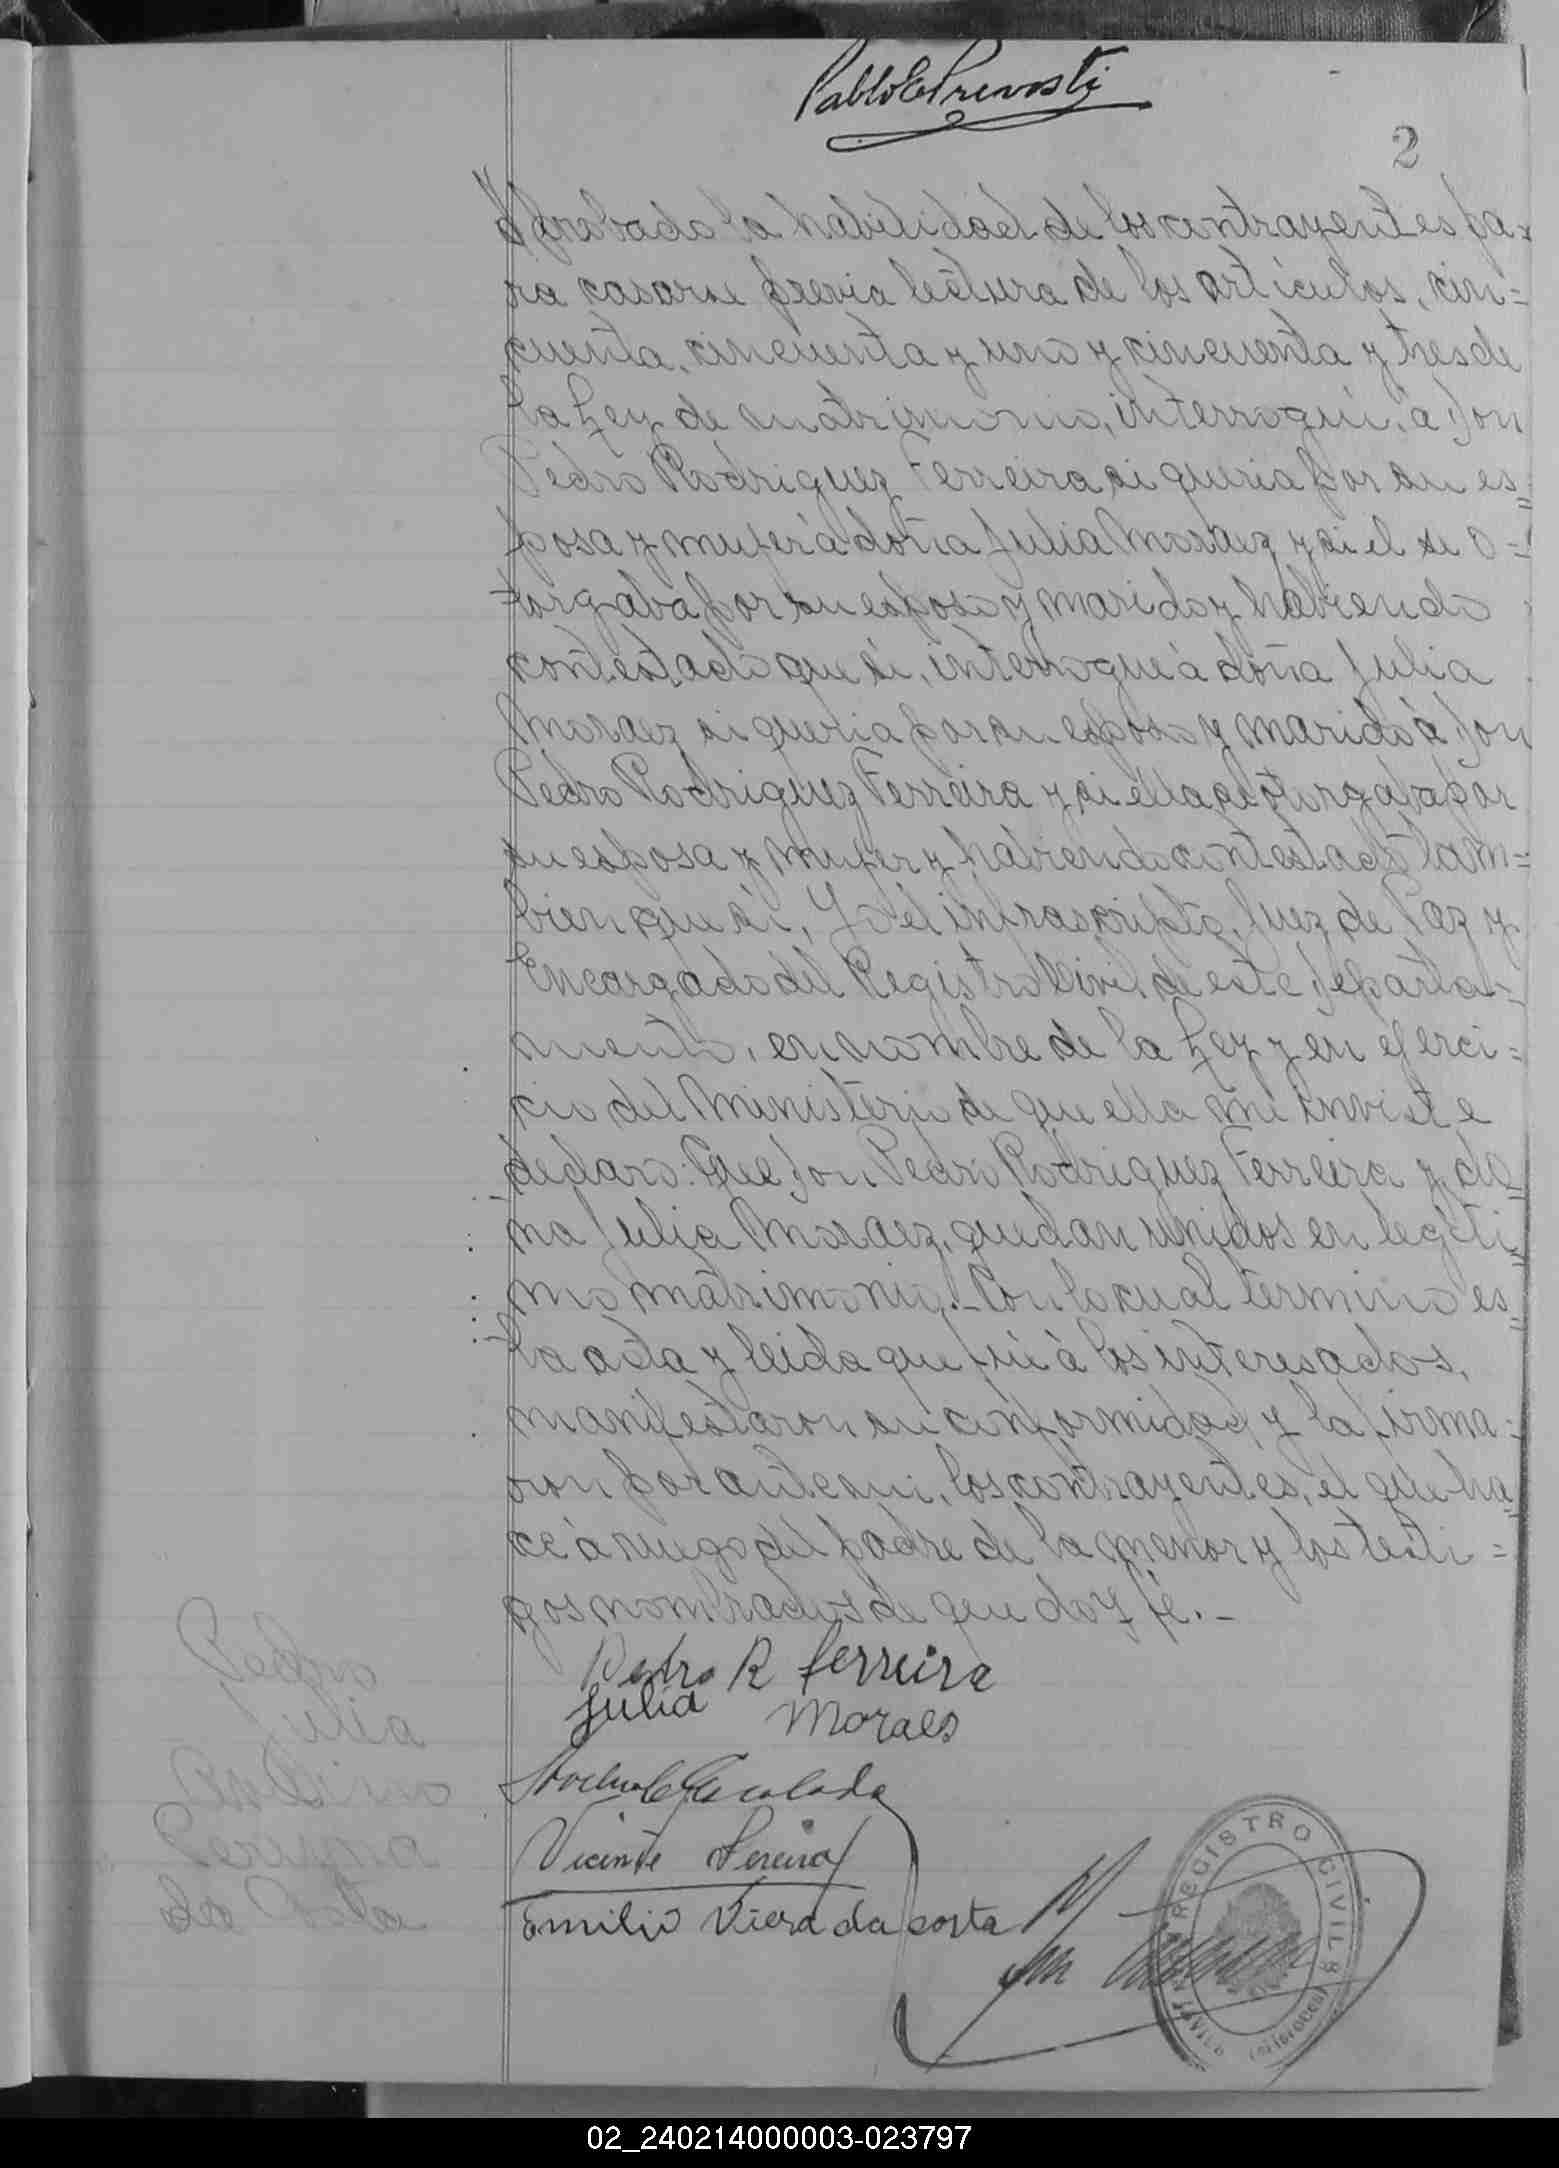 Pablo E Prevosti
2
Aprobada la habilidad de los contrayentes pa-
ra casarse previa lectura de los artículos, cin=
cuenta, cincuenta y uno y cincuenta y tres de
la Ley de matrimonio, interrogué, á Don
Pedro Rodriguez Ferreira si queria por su es=
posa y mujer á doña Julia Moraez y si el se o=
torgaba por su esposo y marido y habiendo
contestado que si, interrogué á doña Julia
Moraez si queria por su esposo y marido á Don
Pedro Rodriguez Ferreira y si ella se oturgaba por
su esposa y mujer y habiendo contestado tam=
bien que si, Yo el infrascripto, Juez de Paz y
Encargado del Registro Civil de este Departa=
mento, en nombre de la Ley y en ejerci=
cio del Ministerio de que ella me inviste
declaro: Que Don Pedro Rodriguez Ferreira y do=
ña Julia Moraez, quedan unidos en legiti=
mo matrimonio.- Con lo cual termino es=
ta acta y leida que fué á los interesados,
manifestaron su conformidad y la firma=
ron por ante mi, los contrayentes, el que ha=
ce á ruego del padre de la menor y los testi=
gos nombrados de que doy fé.-
Pedro R Ferreira
Julia Moraes
Escalada
Vicente Pereira
Emilio Viera da costa
Pedro
Julia
da Costa
REGISTRO CIVIL
02_240214000003-023797